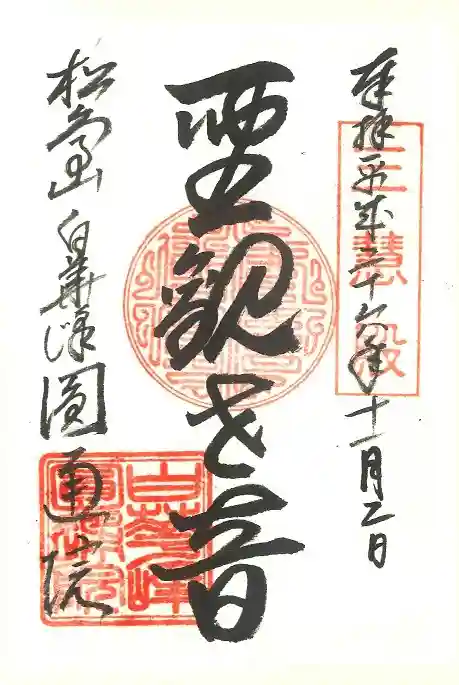 奉拝 平成二十六年十一月二日
三慧殿
聖観世音
松島山 白華峰 圓通院
白華峰
圓通院